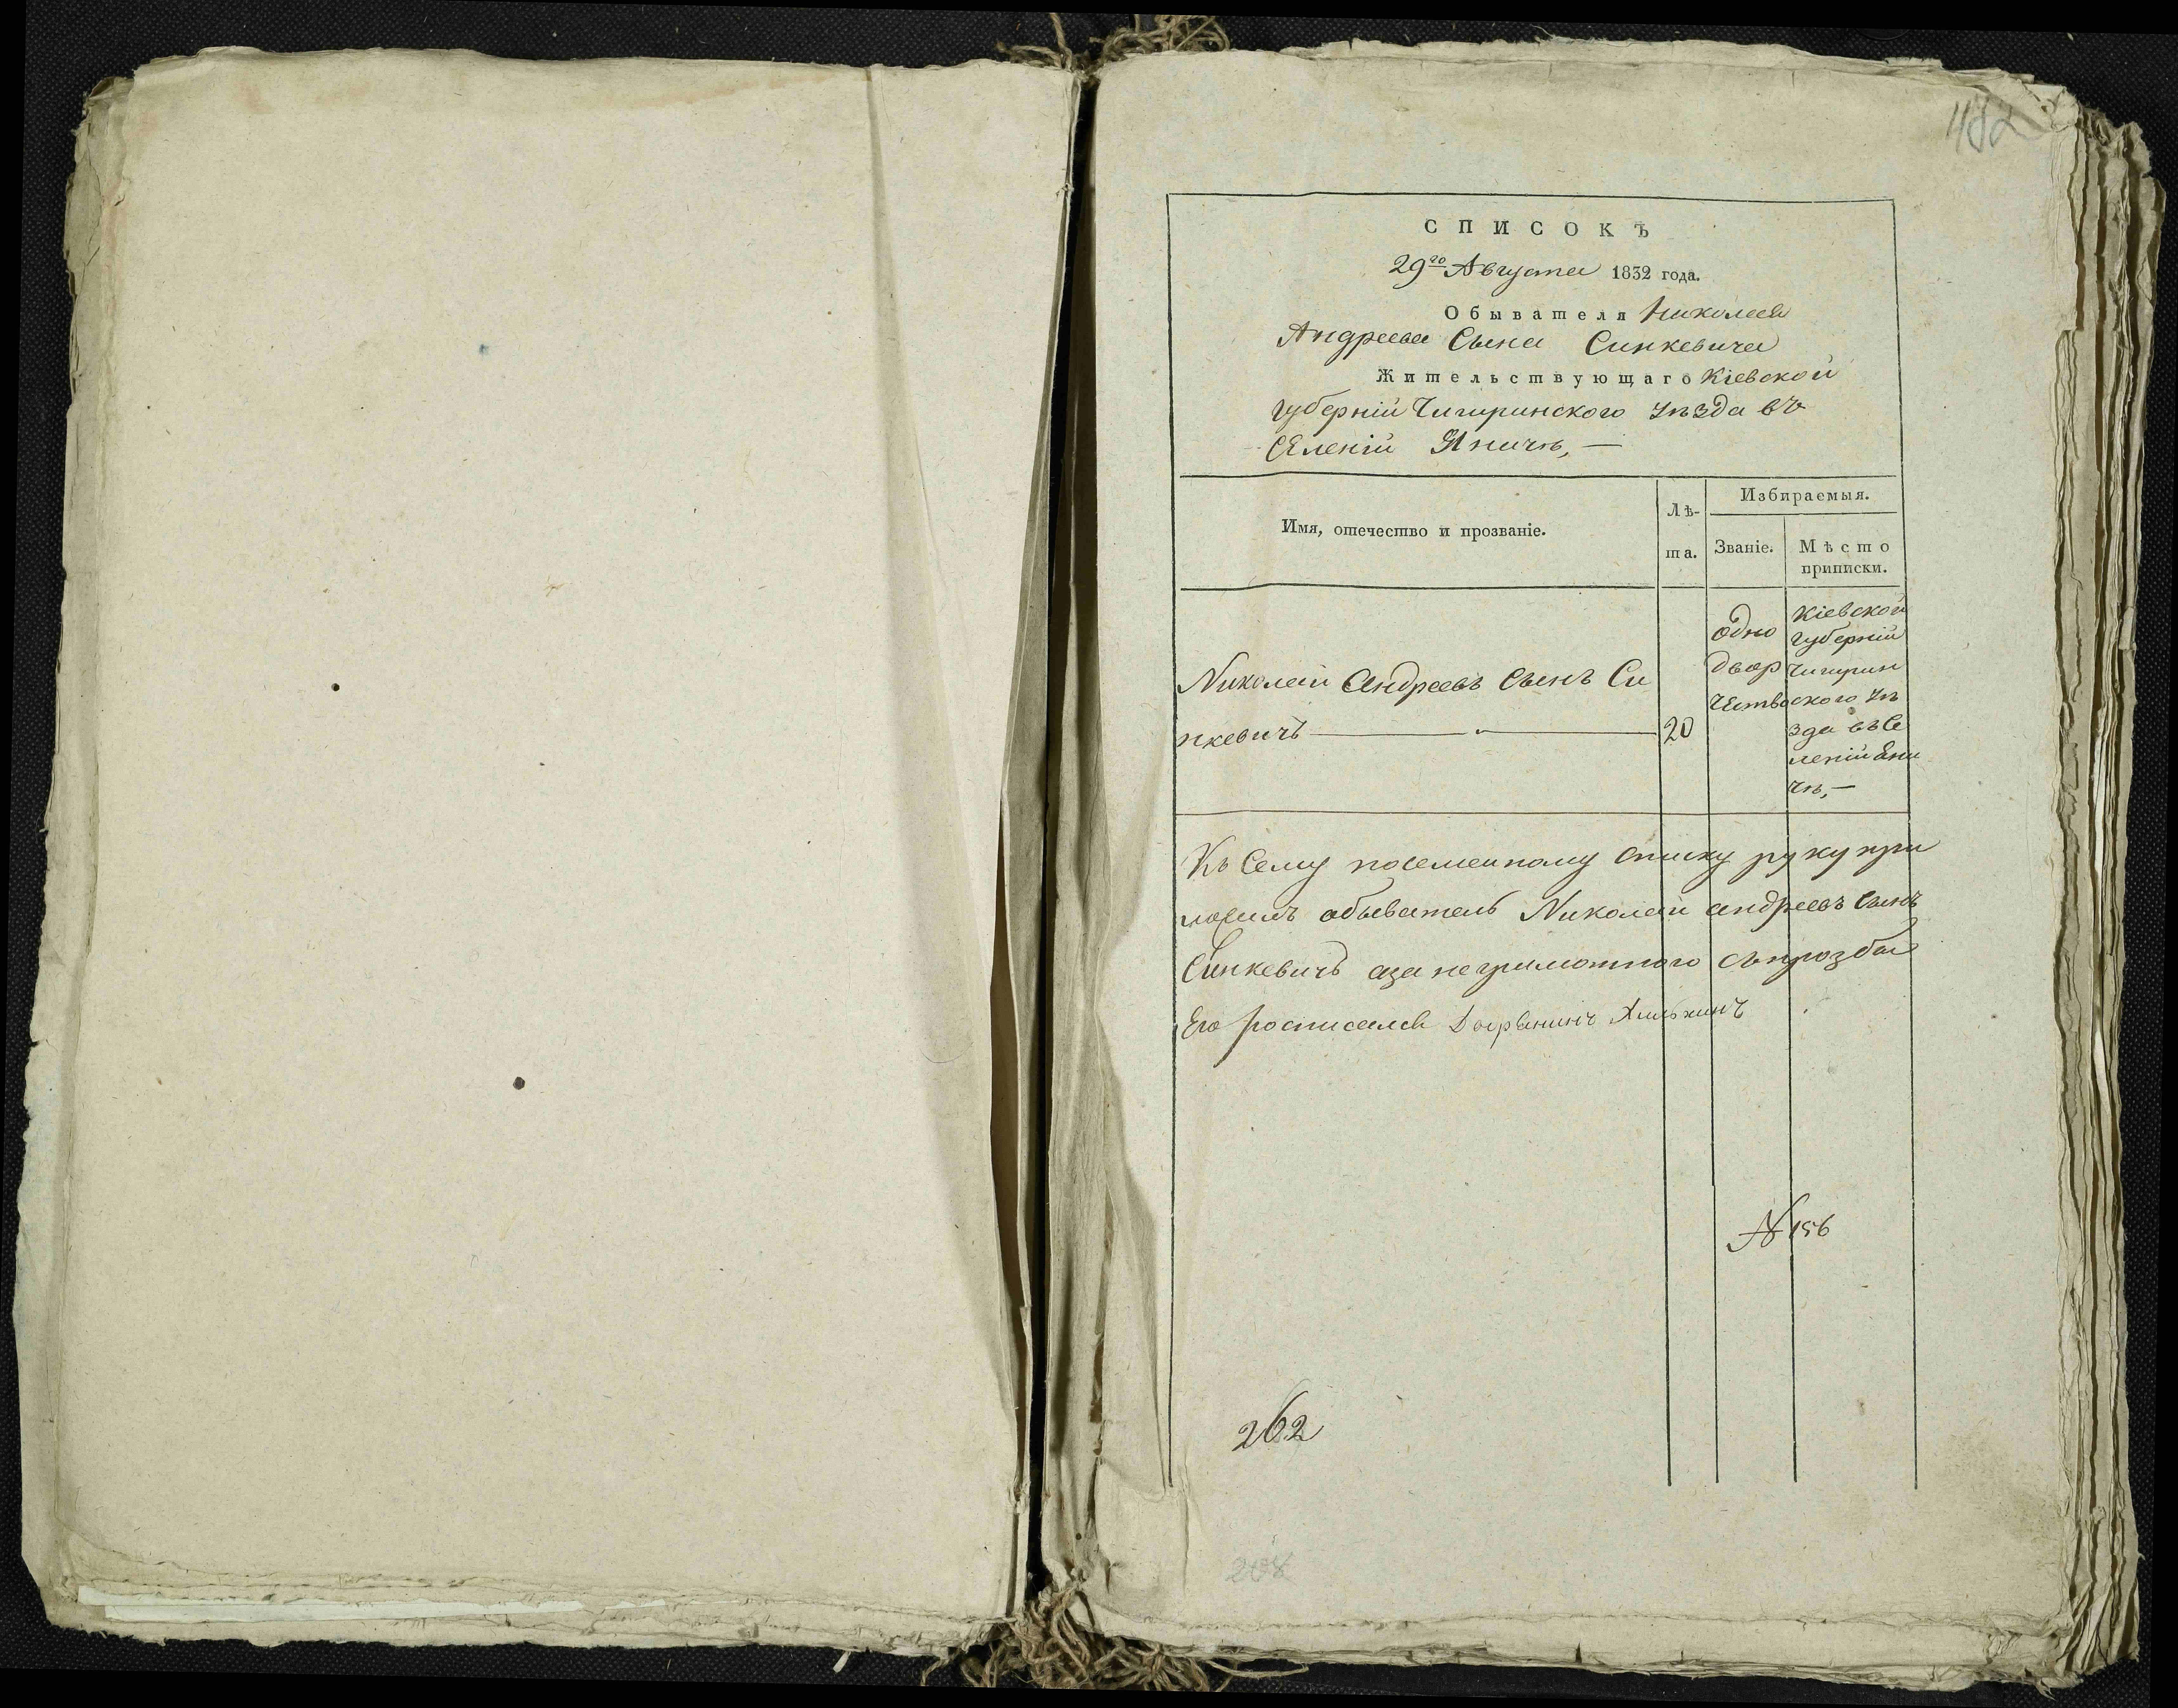 482
СПИСОКЪ
29го Августа 1832 года.
Обывателя Николая
Андреева Сына Синкевича
Жительствующаго Кіевской
губерніи Чигиринского уѣзда въ
Селеніи Яничѣ,—
Имя, отечество и прозваніе.
Лѣта.
Избираемыя.
Званіе.
Мѣсто приписки.
Николай Андреевъ Сынъ Си
нкевичъ
20
одно
двор
чество
Кіевской
губерніи
Чигирин
ского уѣ
зда въ Се
леніи Яни
чѣ,—
Къ Сему посемейному списку руку при
ложилъ обыватель Николай андреевъ Сынъ
Синкевичъ аза неграмотного съ прозбы
Его росписался Дворянинъ
№ 156
262
208